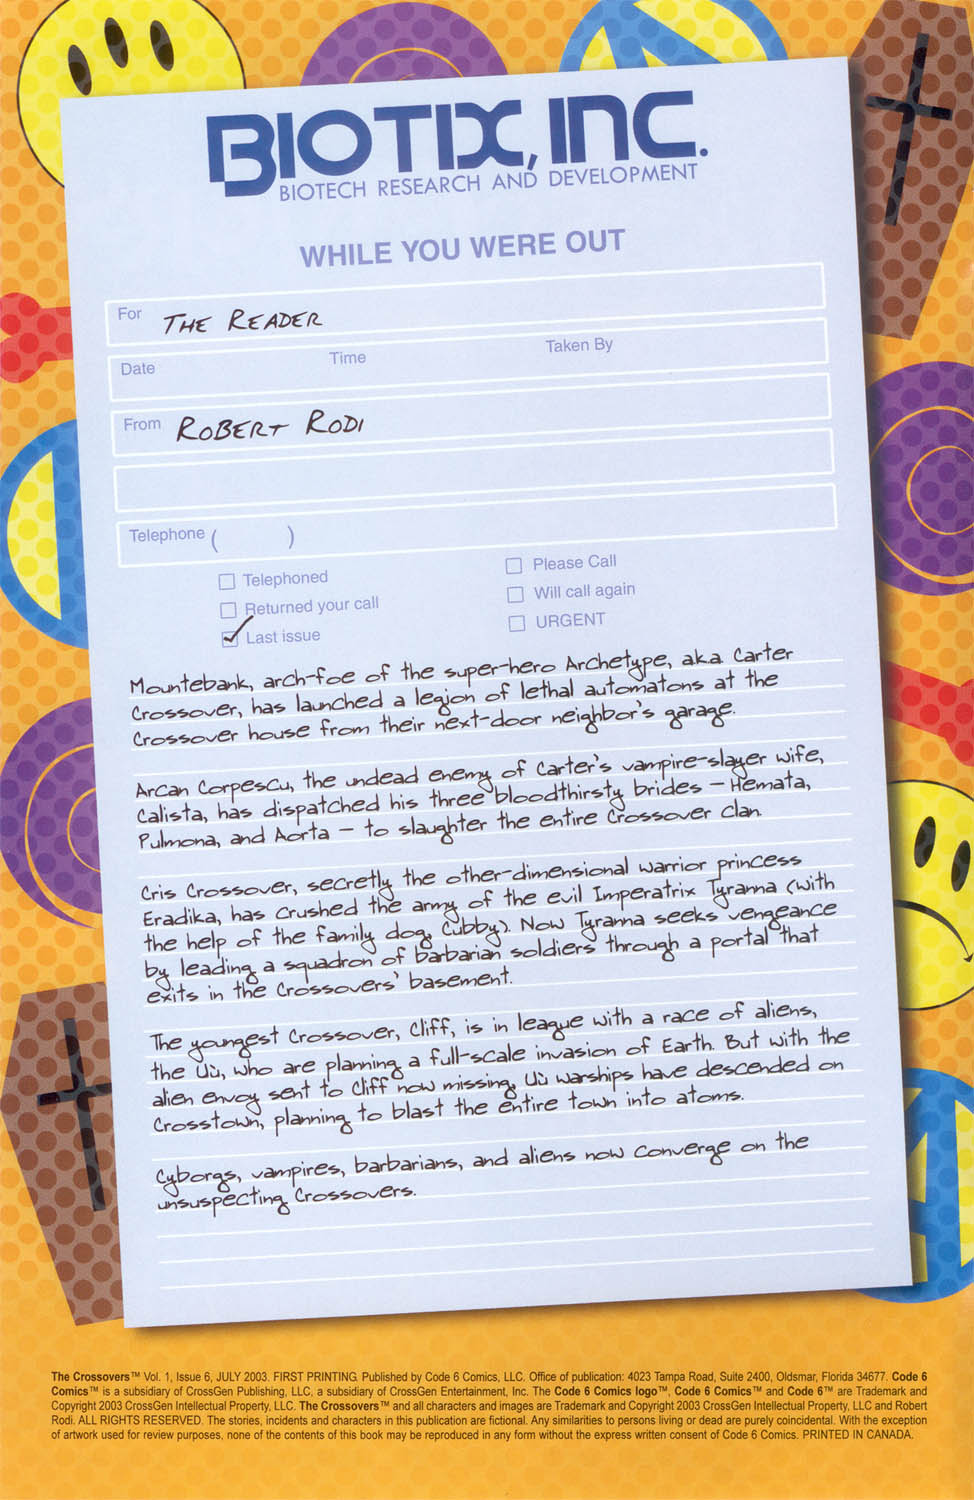 BIOTIX, INC.
BIOTECH RESEARCH AND DEVELOPMENT
WHILE YOU WERE OUT
For THE READER
Date Time Taken By
From ROBERT RODI
Telephone ( )
Telephoned Please Call
Returned your call Will call again
Last issue URGENT
Mountebank, arch-foe of the super-hero Archetype, a.k.a. Carter
Crossover, has launched a legion of lethal automatons at the
Crossover house from their next-door neighbor's garage.
Arcan Corpescu, the undead enemy of Carter's vampire-slayer wife,
Calista, has dispatched his three bloodthirsty brides – Hemata,
Pulmona, and Aorta – to slaughter the entire Crossover clan.
Cris Crossover, secretly the other-dimensional warrior princess
Eradika, has crushed the army of the evil Imperatrix Tyranna (with
the help of the family dog, Cubby). Now Tyranna seeks vengeance
by leading a squadron of barbarian soldiers through a portal that
exits in the Crossovers' basement.
The youngest Crossover, Cliff, is in league with a race of aliens,
the Uù, who are planning a full-scale invasion of Earth. But with the
alien envoy sent to Cliff now missing, Uù warships have descended on
Crosstown, planning to blast the entire town into atoms.
Cyborgs, vampires, barbarians, and aliens now converge on the
unsuspecting Crossovers.
The Crossovers™ Vol. 1, Issue 6, JULY 2003. FIRST PRINTING. Published by Code 6 Comics, LLC. Office of publication: 4023 Tampa Road, Suite 2400, Oldsmar, Florida 34677. Code 6
Comics™ is a subsidiary of CrossGen Publishing, LLC, a subsidiary of CrossGen Entertainment, Inc. The Code 6 Comics logo™, Code 6 Comics™ and Code 6™ are Trademark and
Copyright 2003 CrossGen Intellectual Property, LLC. The Crossovers™ and all characters and images are Trademark and Copyright 2003 CrossGen Intellectual Property, LLC and Robert
Rodi. ALL RIGHTS RESERVED. The stories, incidents and characters in this publication are fictional. Any similarities to persons living or dead are purely coincidental. With the exception
of artwork used for review purposes, none of the contents of this book may be reproduced in any form without the express written consent of Code 6 Comics. PRINTED IN CANADA.